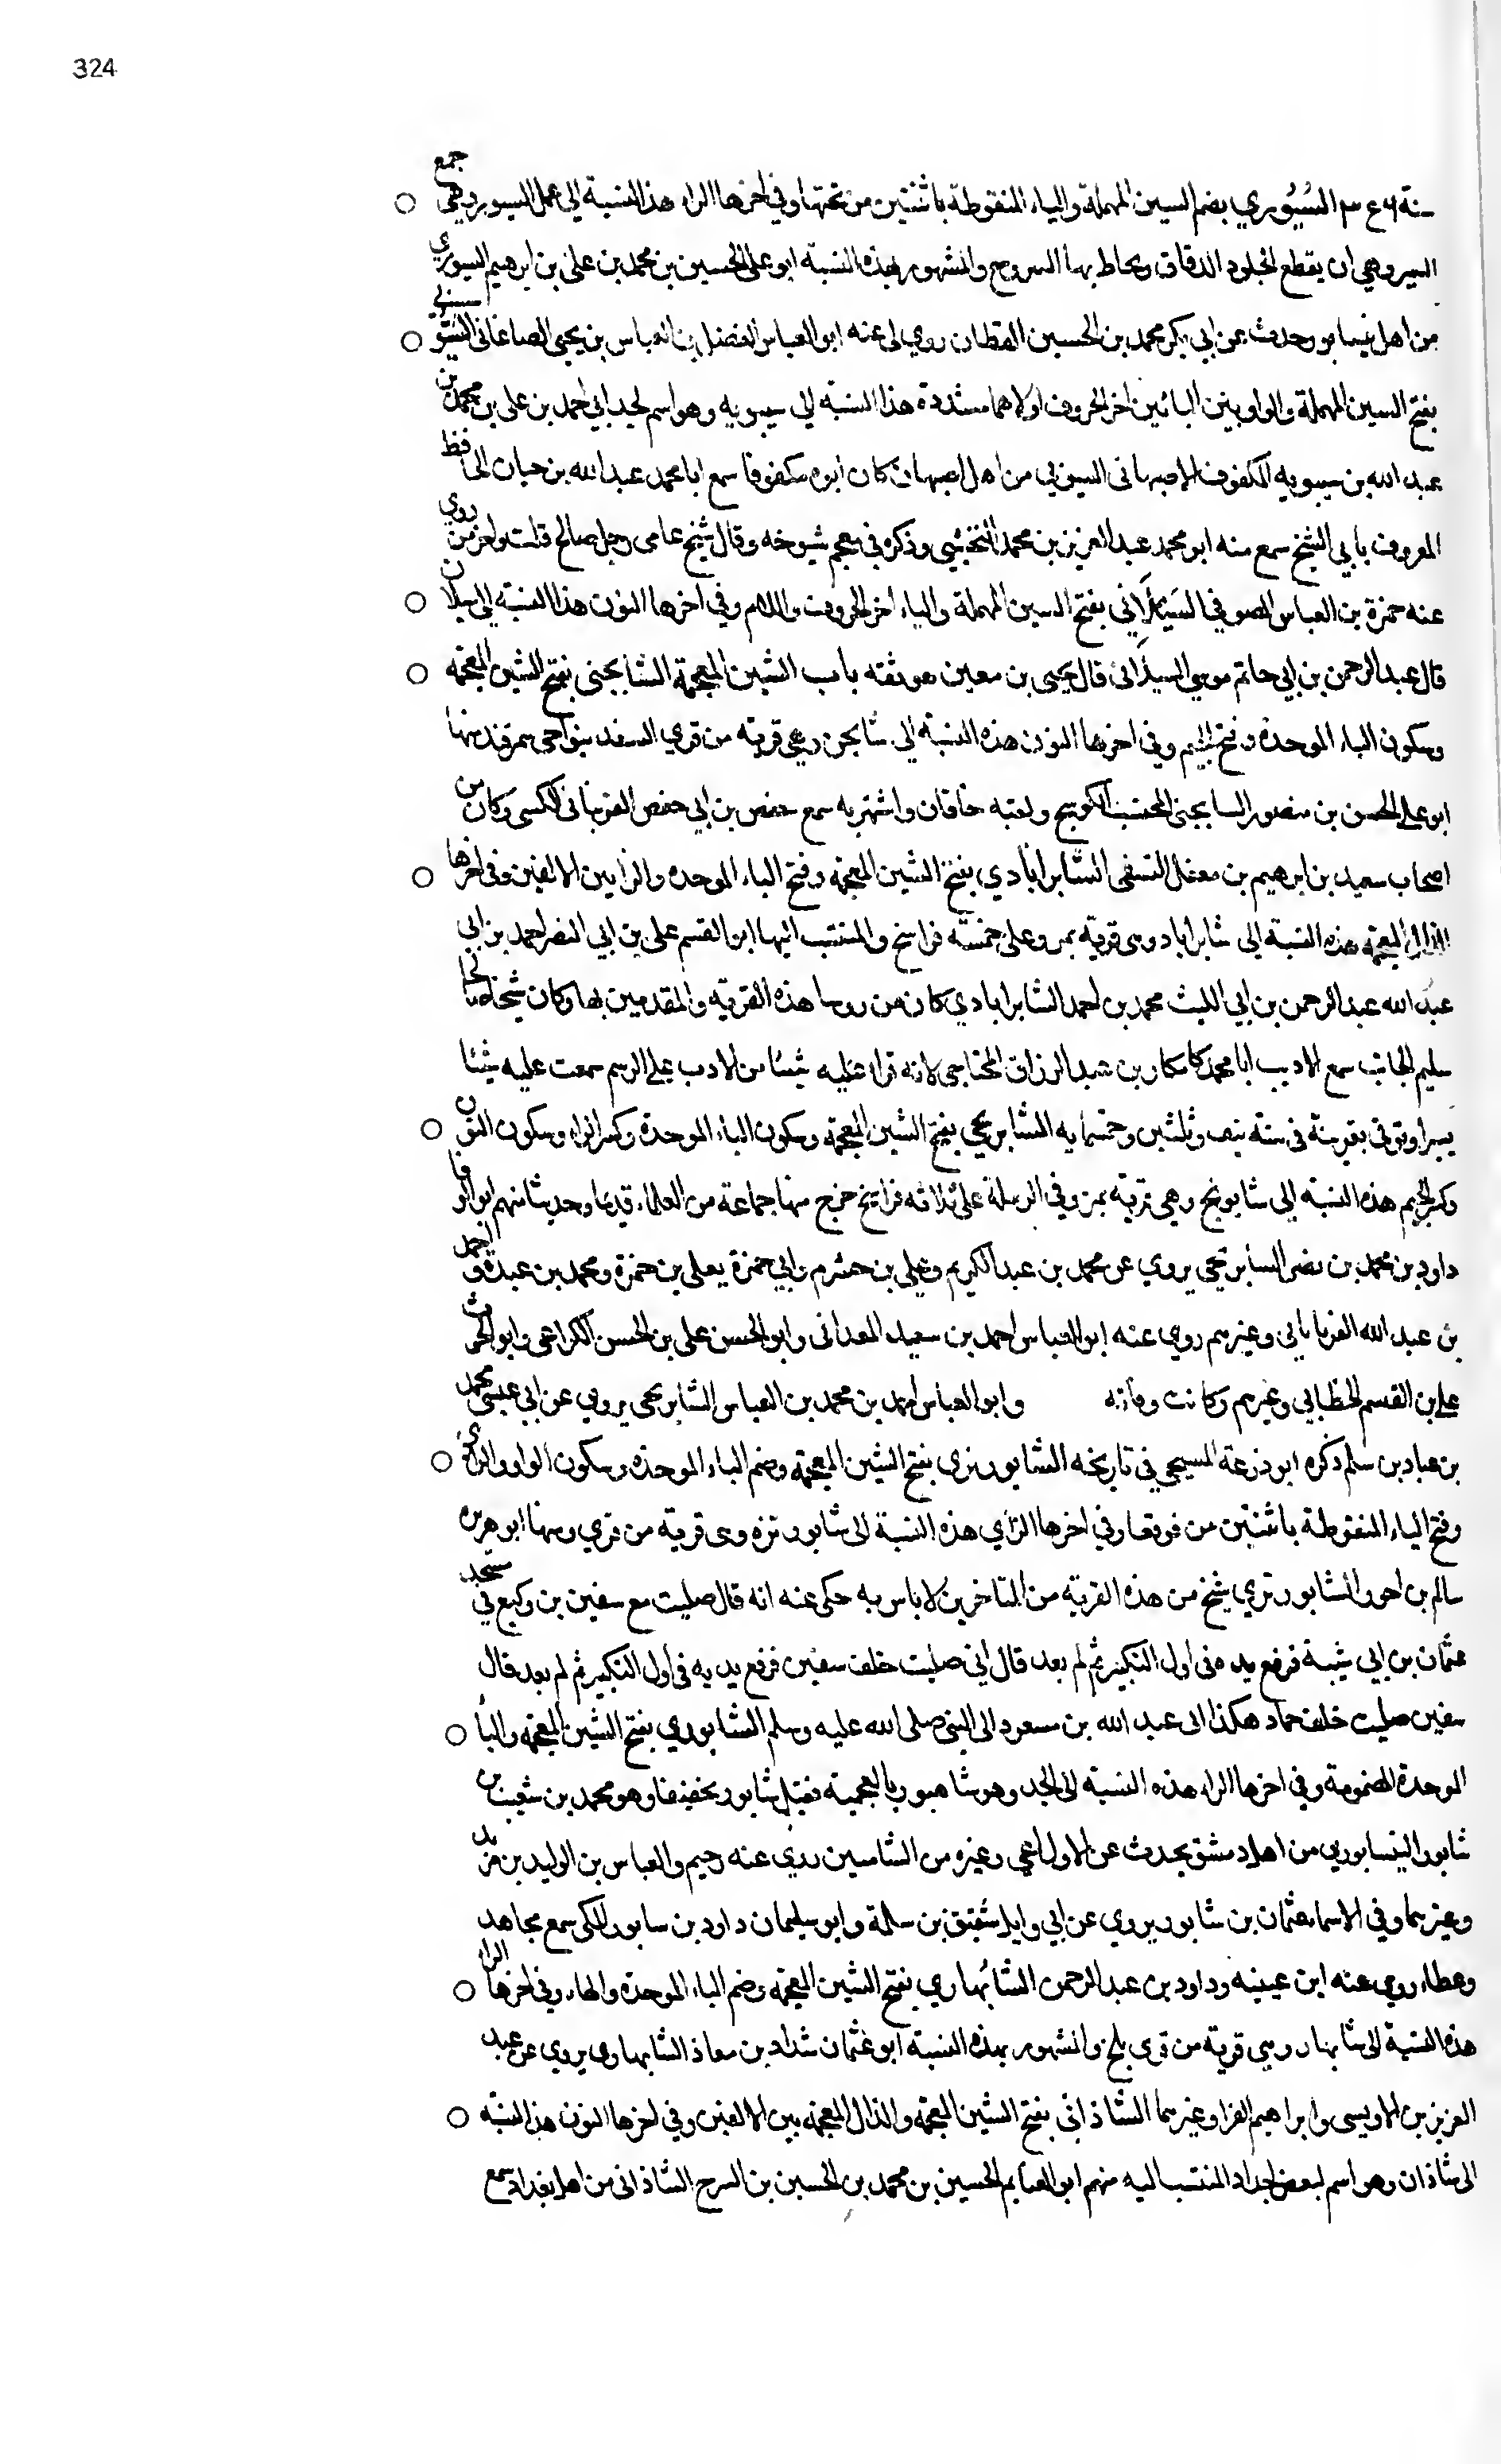 324
السُيُوري بضم السين المهملة والياء المنقوطة باثنتين من تحتها وفي اخرها الراء هذا النسبة الى عمل السيور وهي جمع
السير وهي ان يقطع الجلود الدقاق ويخاط بها السروج والمشهور بهذه النسبة ابو علي الحسين بن محمد بن علي بن ابرهيم السيوري
من اهل نيسابور وحدث عن ابي بكر محمد بن الحسين القطان روى لي عنه ابو العباس الفضل بن العباس بن يحيى الصاغاني
بفتح السين المهملة والواو بين اليائين اخر الحروف اولاهما مشددة هذا النسبة الى سيبويه وهو اسم لجد ابي احمد بن علي بن محمد بن
عبد الله بن سيبويه المكفوف الاصبهاني من اهل اصبهان كان ابوه مكفوفا سمع ابا محمد عبد الله بن حيان الحافظ
المعروف بابي الشيخ سمع منه ابو محمد عبد العزيز بن محمد النخشبي وذكره في معجم شيوخه وقال شيخ عامي رجل صالح قلت روى
عنه حمزة بن العباس الصوفي السَيلَاني بفتح السين المهملة والياء اخر الحروف واللام وفي اخرها النون هذا النسبة الى سيلان
قال عبد الرحمن بن ابي حاتم موسى السيلاني قال يحيى بن معين هو ثقه باب الشين المعجمة الشابجني بفتح الشين المعجمة
وسكون الباء الموحدة وفتح الجيم وفي اخرها النون هذه النسبة الى شابجن وهي قرية من قرى السغد بنواحي سمرقند منها
ابو علي الحسن بن منصور السابجني المحتسب ولقبه خاقان واشتهر به سمع حفص بن ابي حفص الكسي وكان من
اصحاب سعيد بن ابرهيم بن معقل النسفي الشابرابادي بفتح الشين المعجمة وفتح الباء الموحده والراء بين الالفين وفي اخرها
الذال المعجمة هذه النسبة الى شابراباد وهي قرية بمرو على خمسة فراسخ والمنتسب اليها ابو القسم علي بن ابي النضر احمد بن ابي
عبد الله عبد الرحمن بن ابي الليث محمد بن احمد الشابرابادي كان من روسا هذه القرية والمقدمين بها وكان شيخا صالحا
سليم الجانب سمع الاديب ابا محمد كامكار بن عبد الرزاق المحتاجي لانه قرا عليه شيئا من الادب على الرسم سمعت عليه شيئا
يسيرا وتوفي بقريته في سنة نيف وثلثين وخمسمايه الشابرنجي بفتح الشين المعجمة وسكون الباء الموحدة وكسر الراء وسكون النون
وكسر الجيم هذه النسبة الى شابرنج وهي قرية بمرو في الرملة على ثلاثه فراسخ خرج منها جماعة من العلماء قديما وحديثا منهم ابو الوفا
داود بن محمد بن نصر السابرنجي يروي عن محمد بن عبد الكريم وعلي بن خشرم وابي حمزة يعلى بن حمزة ومحمد بن عبدة واحمد
بن عبد الله الفريابابي وغيرهم روى عنه ابو العباس احمد بن سعيد المعداني وابو الحسن علي بن الحسن الكراعي وابو الحرث
علي بن القسم الخطابي وغيرهم وكانت وفاته وابو العباس احمد بن محمد بن العباس الشابرنجي يروي عن ابي عيسى محمد
بن عباد بن سلم ذكره ابو زرعة السبحي في تاريخه الشابورتزي بفتح الشين المعجمة وضم الباء الموحدة وسكون الواو والراء
وفتح الياء المنقوطة باثنتين من فوقها وفي اخرها الزاي هذه النسبة الى شابورتزه وهي قرية من قرى ومنها ابو هريره
سالم بن احور الشابورتزي شيخ من هذه القرية من المتاخرين لا باس به حكى عنه انه قال صليت مع سفين بن وكيع في مسجد
عثمان بن ابي شيبة فرفع يده في اول التكبير ثم لم يعد قال اني صليت خلف سفين فرفع يديه في اول التكبير ثم لم يعد قال
سفين صليت خلف حماد هكذا الى عبد الله بن مسعود الى النبي صلى الله عليه وسلم الشابوري بفتح الشين المعجمة والبا
الموحدة المضمومة وفي اخرها الراء هذه النسبة الى الجد وهو شاهبور بالعجمية فقيل شابور تخفيفا وهو محمد بن شعيب بن
شابور النيسابوري من اهل دمشق يحدث عن الاوزاعي وغيره من الشاميين روى عنه دحيم والعباس بن الوليد بن مزيد
وغيرهما وفي الاسماء عثمان بن شابور يروي عن ابي وايل شقيق بن سلمة وابو سليمان داود بن سابور المكي سمع مجاهد
وعطاء روى عنه ابن عيينه وداود بن عبد الرحمن الشابُهاري بفتح الشين المعجمة وضم الباء الموحدة والهاء وفي اخرها الراء
هذه النسبة الى شابهار وهي قرية من قرى بلخ والمشهور بهذه النسبة ابو عثمان شداد بن معاذ الشابهاري يروي عن عبد
العزيز بن الاويسي وابراهيم الفرا وغيرهما الشاذاني بفتح الشين المعجمة والذال المعجمة بين الالفين وفي اخرها النون هذا النسبة
الى شاذان وهو اسم لبعض اجداد المنتسب اليه منهم ابو الغنايم الحسين بن محمد بن الحسين بن السرح الشاذاني من اهل بغداد سمع